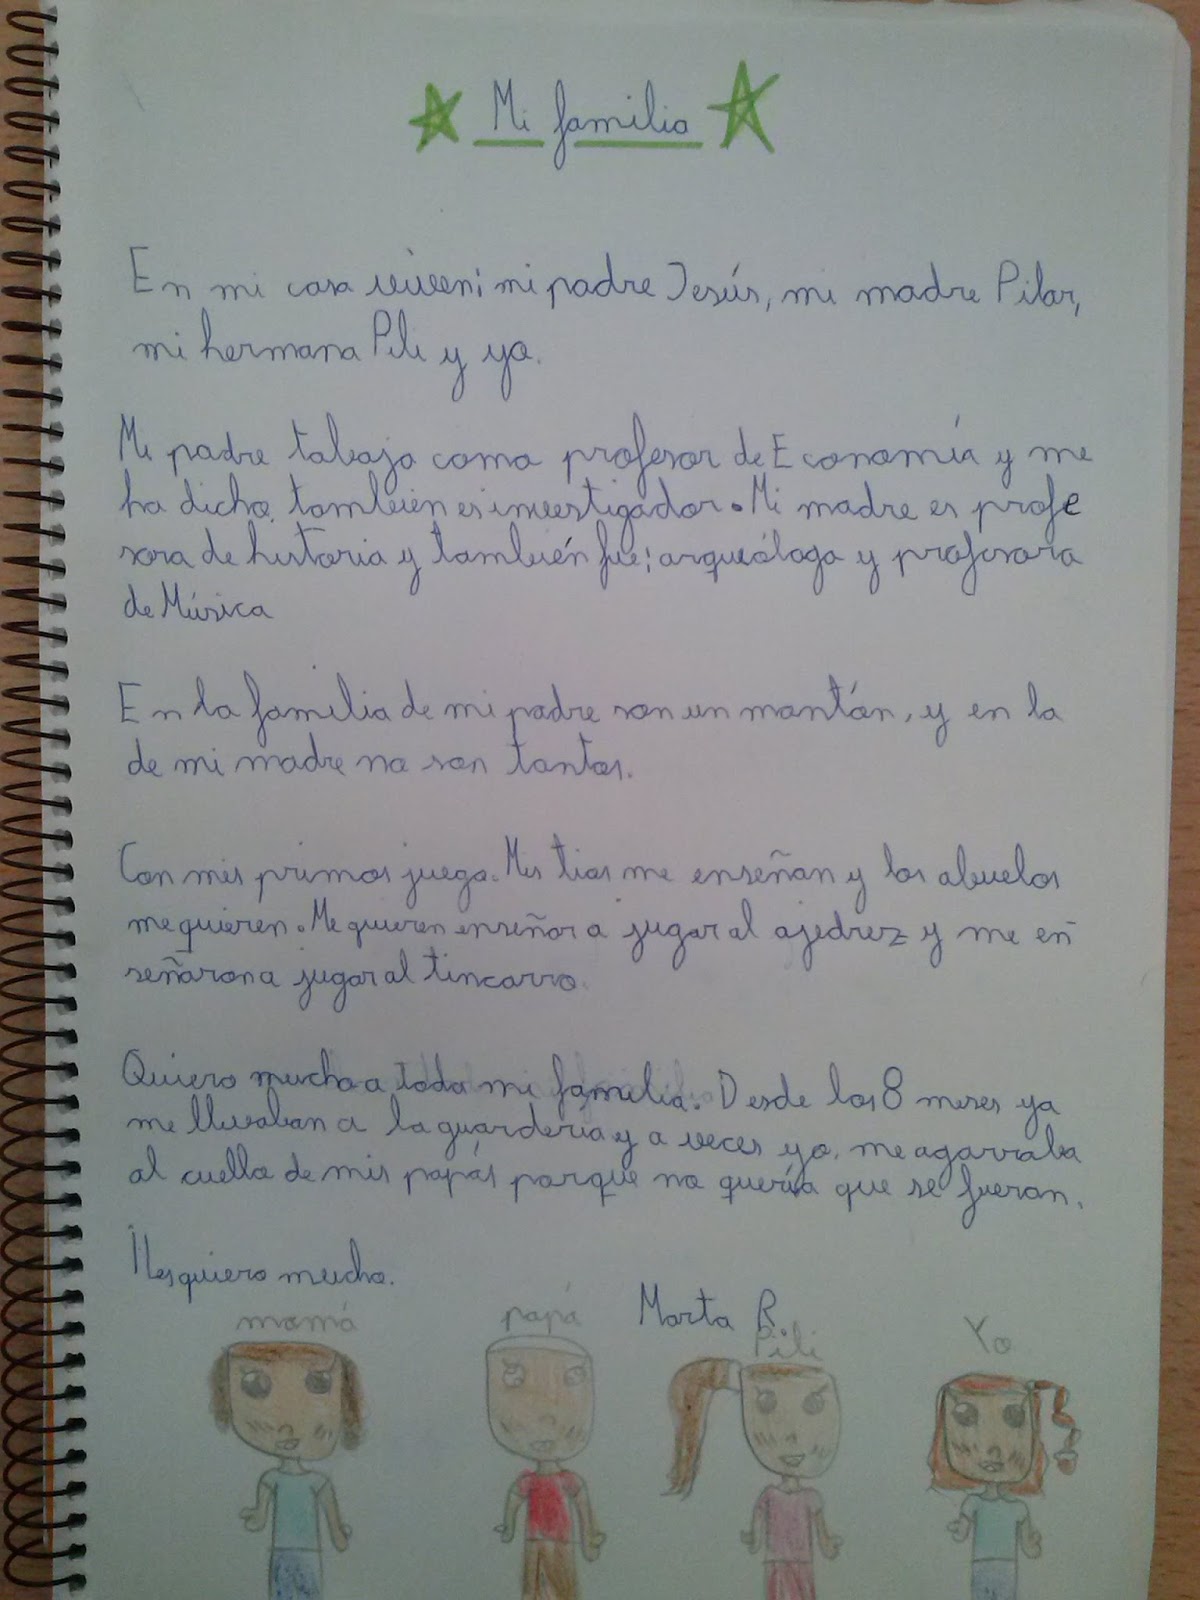 Mi familia
En mi casa viven: mi padre Jesús, mi madre Pilar,
mi hermana Pili y yo.
Mi padre tabaja como profesor de Economía y me
ha dicho, también es investigador. Mi madre es profe
sora de historia y también fue: arqueóloga y profesora
de Música
En la familia de mi padre son un mantón, y en la
de mi madre no son tantos.
Con mis primos juego. Mis tios me enseñan y los abuelos
me quieren. Me quieren enseñar a jugar al ajedrez y me en
señaron a jugar al tincarro.
Quiero mucho a toda mi familia. Desde los 8 meses ya
me llevaban a la guarderia y a veces yo, me agarraba
al cuello de mis papás porque no quería que se fueran.
¡Les quiero mucho.
Marta R.
mamá papá Pili Yo